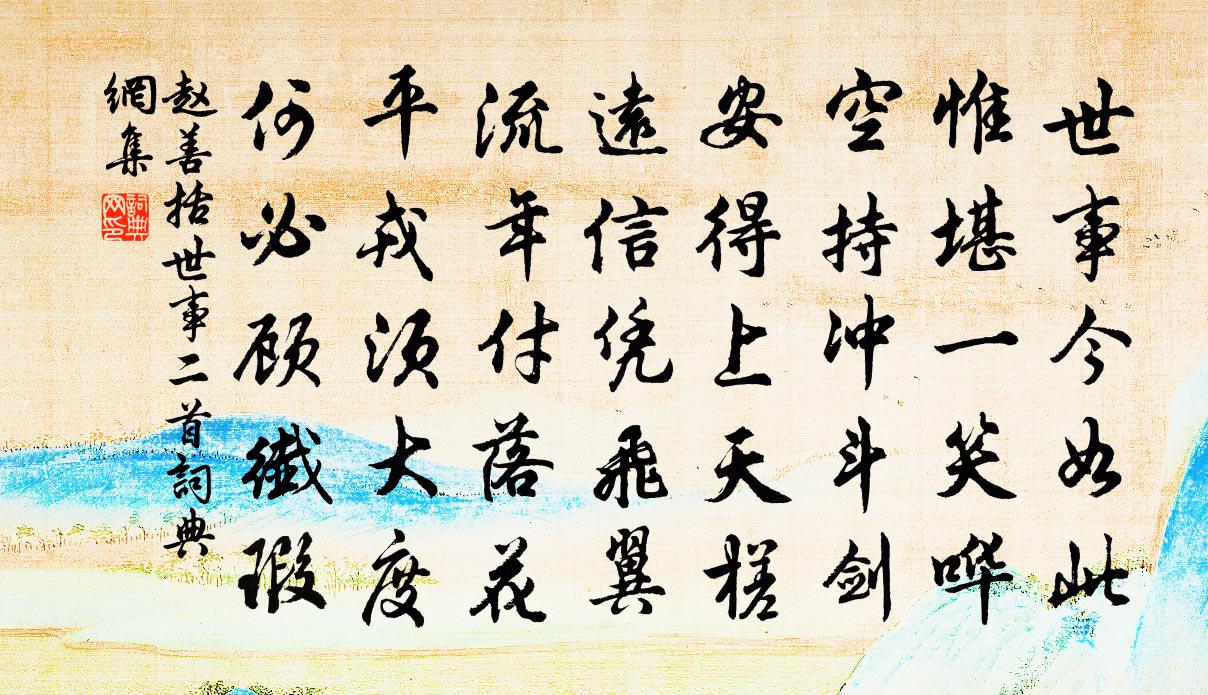 世事今如此
惟堪一笑哗
空持冲斗剑
安得上天槎
遠信凭飛翼
流年付落花
平戎须大度
何必顾纖瑕
赵善括世事二首詞典
網集
詞典
网印